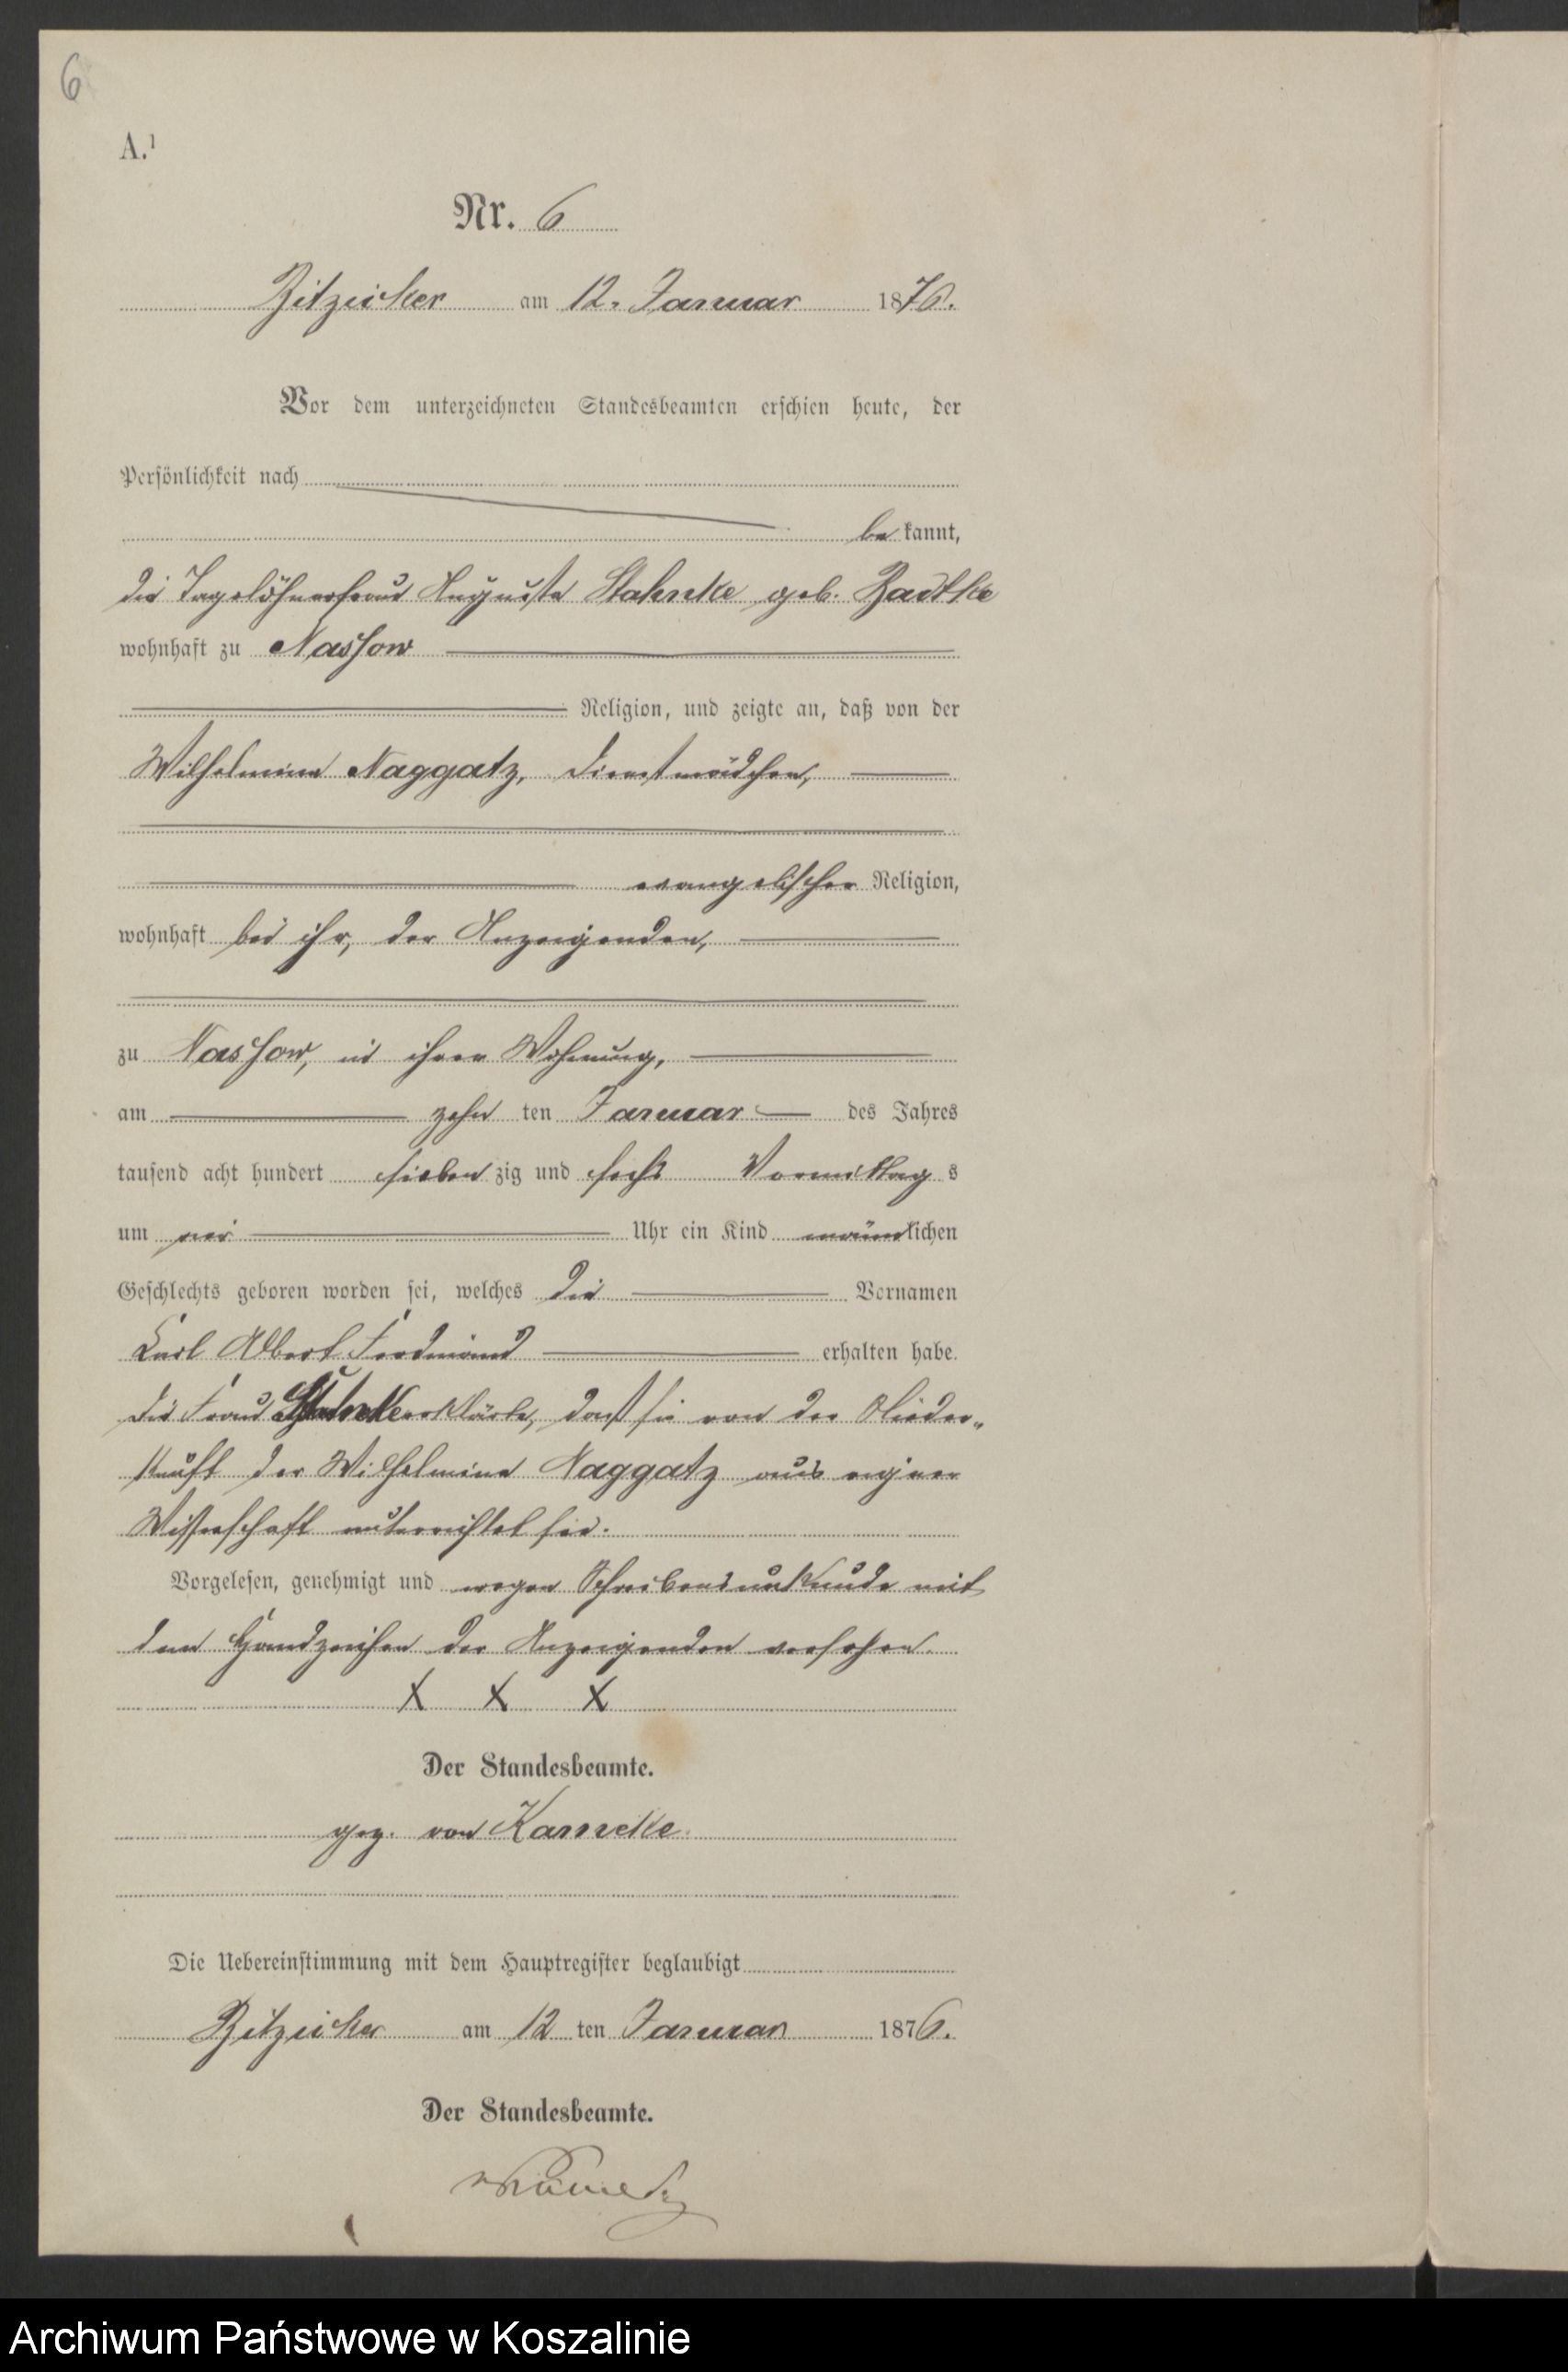 6
A.¹
Nr. 6
Ritzicker am 12. Januar 1876.
Vor dem unterzeichneten Standesbeamten erschien heute, der
Persönlichkeit nach
be kannt,
die Tagelöhnerfrau Auguste Stahnke geb. Radtke
wohnhaft zu Nassow
Religion, und zeigte an, daß von der
Wilhelmine Naggatz, Dienstmädchen,
evangelischer Religion,
wohnhaft bei ihr, der Anzeigenden,
zu Nassow, in ihrer Wohnung,
am zehn ten Januar des Jahres
tausend acht hundert sieben zig und sechs Vormittag s
um Uhr ein Kind männlichen
Geschlechts geboren worden sei, welches die Vornamen
Carl Albert Ferdinand erhalten habe.
Die Frau Stahnke erklärte, daß sie von der Nieder-
kunft der Wilhelmine Naggatz aus eigner
Wissenschaft unterrichtet sei.
Vorgelesen, genehmigt und wegen Schreibensunkunde mit
den Handzeichen der Anzeigenden versehen.
X X X
Der Standesbeamte.
gez. von Kameke.
Die Uebereinstimmung mit dem Hauptregister beglaubigt
Ritzicker am 12 ten Januar 1876.
Der Standesbeamte.
vKameke
Archiwum Państwowe w Koszalinie